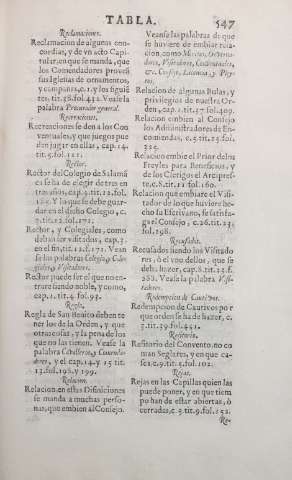 TABLA.
547
Reclamaciones.
Reclamacion de algunas con-
cordias, y de vn acto Capi-
tular, en que se manda, que
los Comendadores provean
sus Iglesias de ornamentos,
y campanas, c.1. y los siguiē
tes, tit.38. fol.421. Vease la
palabra Procurador general.
Recreaciones.
Recreaciones se den a los Con
ventuales, y que juegos pue
den jugar en ellas, cap.14.
tit.5. fol.121.
Rector.
Rector del Colegio de Salamā
ca se ha de elegir de tres en
tres años, cap.9. tit.12. fol.
Y lo que se debe guar-
dar en el dicho Colegio, c.
7. tit.12. fol.172.
Rector, y Colegiales, como
deban ser visitados, cap.3.
en el fin, tit.12. f.171. Vean
se las palabras Colegio, y Cole
giales, y Visitadores.
Rector puede ser el que no en-
trare siendo noble, y como,
cap.1. tit.4. fol.93.
Regla.
Regla de San Benito deben te
ner los de la Orden, y que
otras cosas, y la pena de los
que no las tienen. Vease la
palabra Cavalleros, y Comenda-
dores, y el cap.14. y 15. tit.
13. fol.198. y 199.
Relacion.
Relacion, en estas Difiniciones
se manda a muchas perso-
nas, que embien al Consejo.
Veanse las palabras de que
se huviere de embiar rela-
cion, como
Visitadores,
&c. Consejo, Licencia, y
Relacion de algunas Bulas, y
privilegios de nuestra Or-
den, cap.1. tit.37. fol.409.
Relacion embien al Consejo
los Administradores de En-
comiendas, c.5. tit.23. fol.
325.
Relacion embie el Prior de los
Freyles para Beneficios, y
de los Clerigos el Arcipres-
te, c.8. tit.12. fol.160.
Relacion que embiare el Visi-
tador de lo que huviere he-
cho su Escrivano, se satisfa-
ga el Consejo, c.26. tit.13.
fol.198.
Recusados.
Recusados siendo los Visitado
res, ò el vno dellos, que se
debe hazer, cap.8. tit.13. f.
Vease la palabra Visi-
tadores.
Redempcion de Cautivos.
Redempcion de Cautivos por
que orden se ha de hazer, c.
3. tit.39. fol.431.
Refitorio.
Refitorio del Convento, no co
man Seglares, y en que ca-
sos, c.9. tit.4. fol.102.
Rejas.
Rejas en las Capillas quien las
puede poner, y en que tiem
po han de estar abiertas, ò
cerradas, c.5. tit.9. fol.152.
Re-